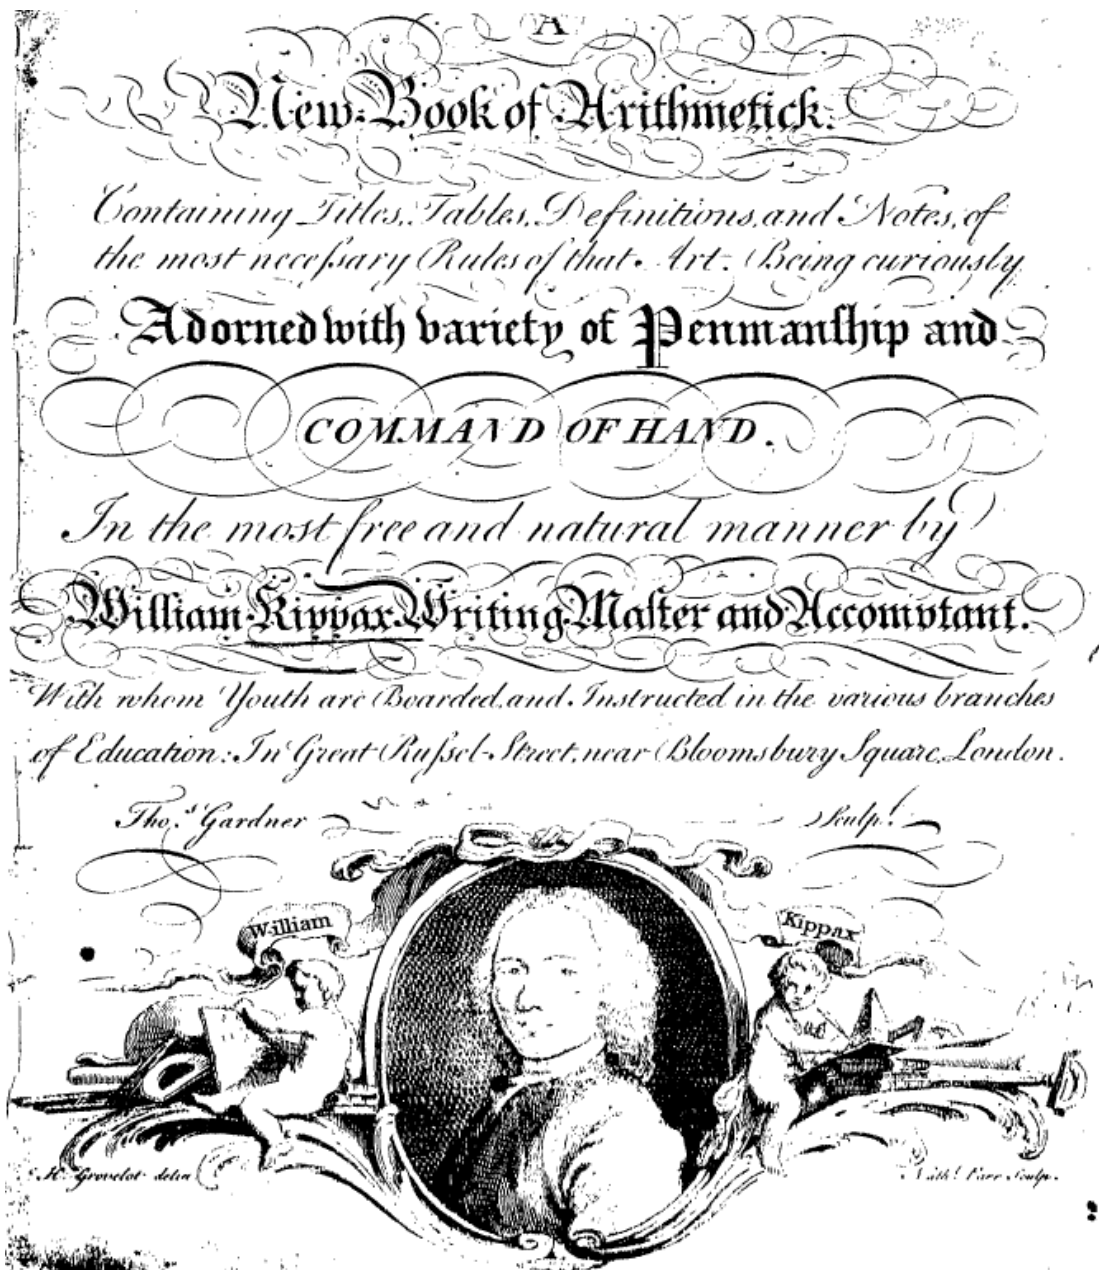 A
New Book of Arithmetick.
Containing Titles, Tables, Definitions, and Notes, of
the most neceſsary Rules of that Art. Being curiously
Adorned with variety of Penmanſhip and
COMMAND OF HAND.
In the most free and natural manner by
William Kippax Writing Maſter and Accomptant.
With whom Youth are Boarded, and Instructed in the various branches
of Education: In Great Ruſsel-Street, near Bloomsbury Square, London.
Tho.s Gardner Sculp.t
William Kippax
H. Grovelot delin Nath.l Parr Sculp.